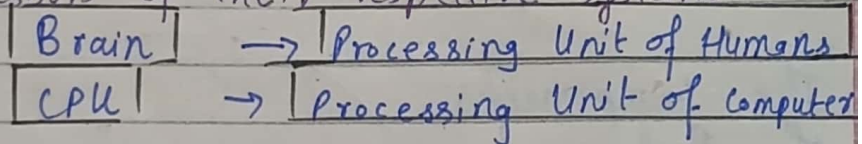 Brain → Processing Unit of Humans
CPU → Processing Unit of Computer